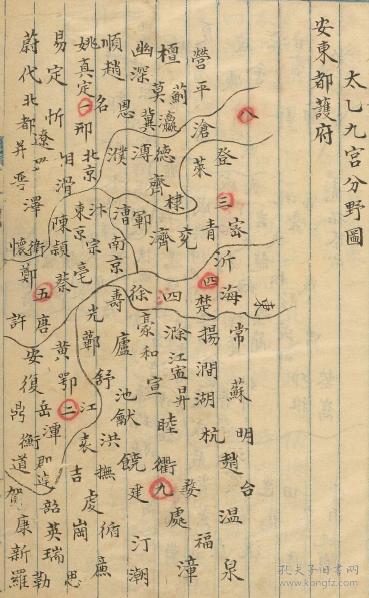 太乙九宮分野圖
安東都護府
營平滄 八
登萊
三密青
沂海
四楚揚潤湖杭
東
常蘇明
越台溫泉
檀薊莫瀛
德齊棣
兗濟鄆
四滁江寧昇宣
睦衢九婺處福漳
幽深冀
恩濮
曹南京壽
徐濠和
廬舒池
饒建汀潮
順趙名
北京
汴宋亳
東京
光蘄
江袁洪撫
吉虔
循
姚真定一邢
滑
陳潁蔡
唐黃鄂二
易定忻
岳潭
韶英瑞
蔚代北都并晉澤
衛懷鄭五許
安復鼎衡道賀康新羅
勤思
孔夫子旧书网
www.kongfz.com